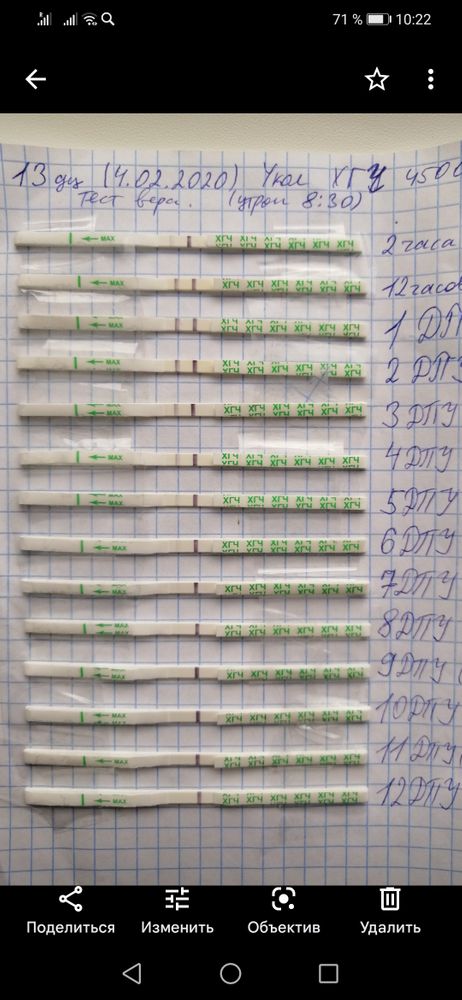 71 % 10:22
13 дц (4.02.2020) Укол ХГЧ 4500
Тест вера. (утром 8:30)
MAX ХГЧ ХГЧ ХГЧ ХГЧ ХГЧ ХГЧ 2 часа
MAX ХГЧ ХГЧ ХГЧ ХГЧ ХГЧ ХГЧ 12 часов
MAX ХГЧ ХГЧ ХГЧ ХГЧ ХГЧ ХГЧ 1 ДП
MAX ХГЧ ХГЧ ХГЧ ХГЧ ХГЧ ХГЧ 2 ДПУ
MAX ХГЧ ХГЧ ХГЧ ХГЧ ХГЧ ХГЧ 3 ДПУ
MAX ХГЧ ХГЧ ХГЧ ХГЧ ХГЧ ХГЧ 4 ДПУ
MAX ХГЧ ХГЧ ХГЧ ХГЧ ХГЧ ХГЧ 5 ДПУ
MAX ХГЧ ХГЧ ХГЧ ХГЧ ХГЧ ХГЧ 6 ДПУ
MAX ХГЧ ХГЧ ХГЧ ХГЧ ХГЧ ХГЧ 7 ДПУ
MAX ХГЧ ХГЧ ХГЧ ХГЧ ХГЧ ХГЧ 8 ДПУ
MAX ХГЧ ХГЧ ХГЧ ХГЧ ХГЧ ХГЧ 9 ДПУ
MAX ХГЧ ХГЧ ХГЧ ХГЧ ХГЧ ХГЧ 10 ДПУ
MAX ХГЧ ХГЧ ХГЧ ХГЧ ХГЧ ХГЧ 11 ДПУ
MAX ХГЧ ХГЧ ХГЧ ХГЧ ХГЧ ХГЧ 12 ДПУ
Поделиться Изменить Объектив Удалить